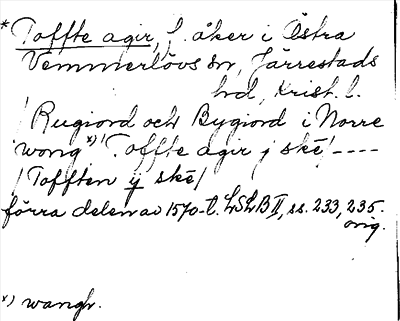 *Toffte agir, f. åker i Östra
Vemmerlövs sn, Järrestads
hd, Krist. l.
/ Rugiord och Bygiord i Norre
wong*)/ Toffte agir j skė/ ----
/ Tofften ÿ skė/
förra delen av 1570-t. LSLB II, ss. 233, 235.
orig.
*) wangh.